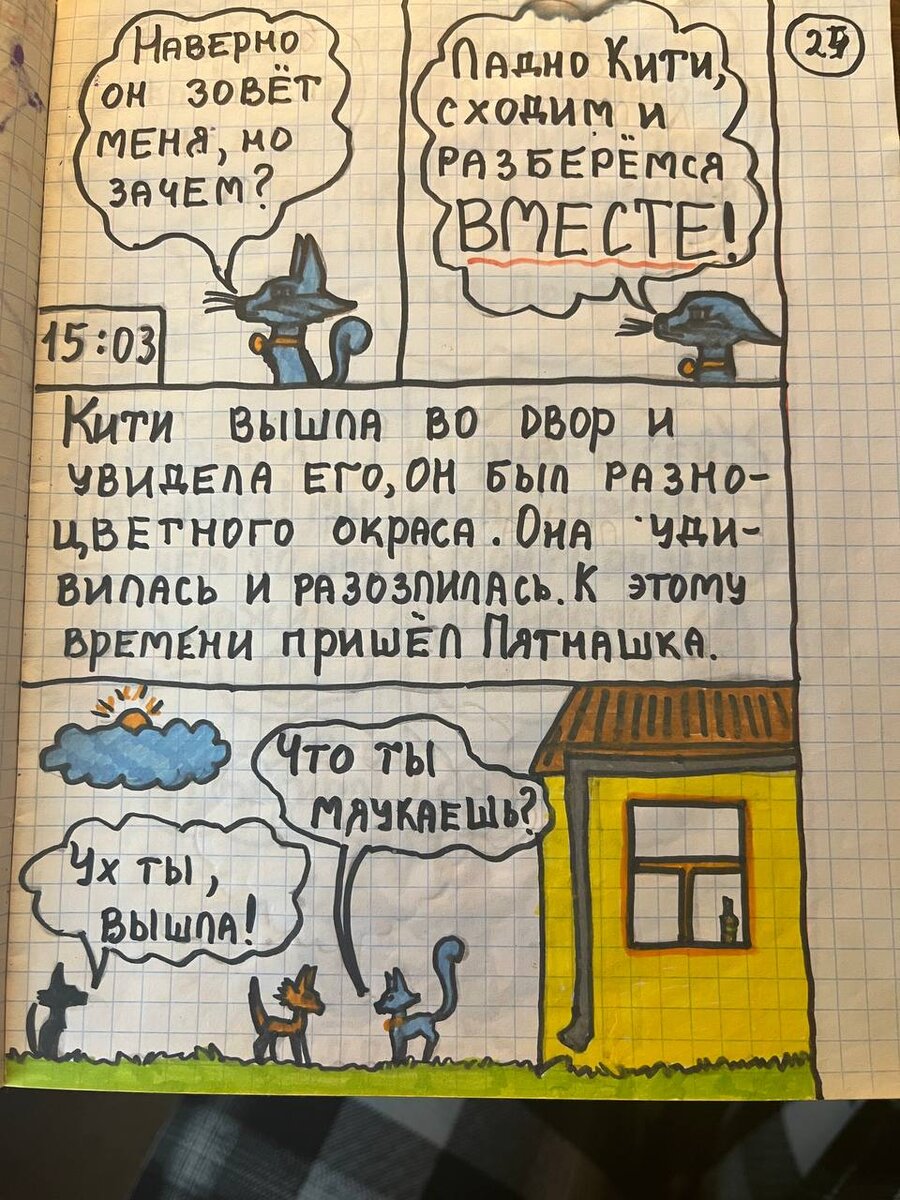 Наверно
он зовёт
меня, но
зачем?
15:03
Ладно Кити,
сходим и
разберёмся
ВМЕСТЕ!
Кити вышла во двор и
увидела его, он был разно-
цветного окраса. Она уди-
вилась и разозлилась. К этому
времени пришёл Пятнашка.
Что ты
мяукаешь?
Ух ты,
вышла!